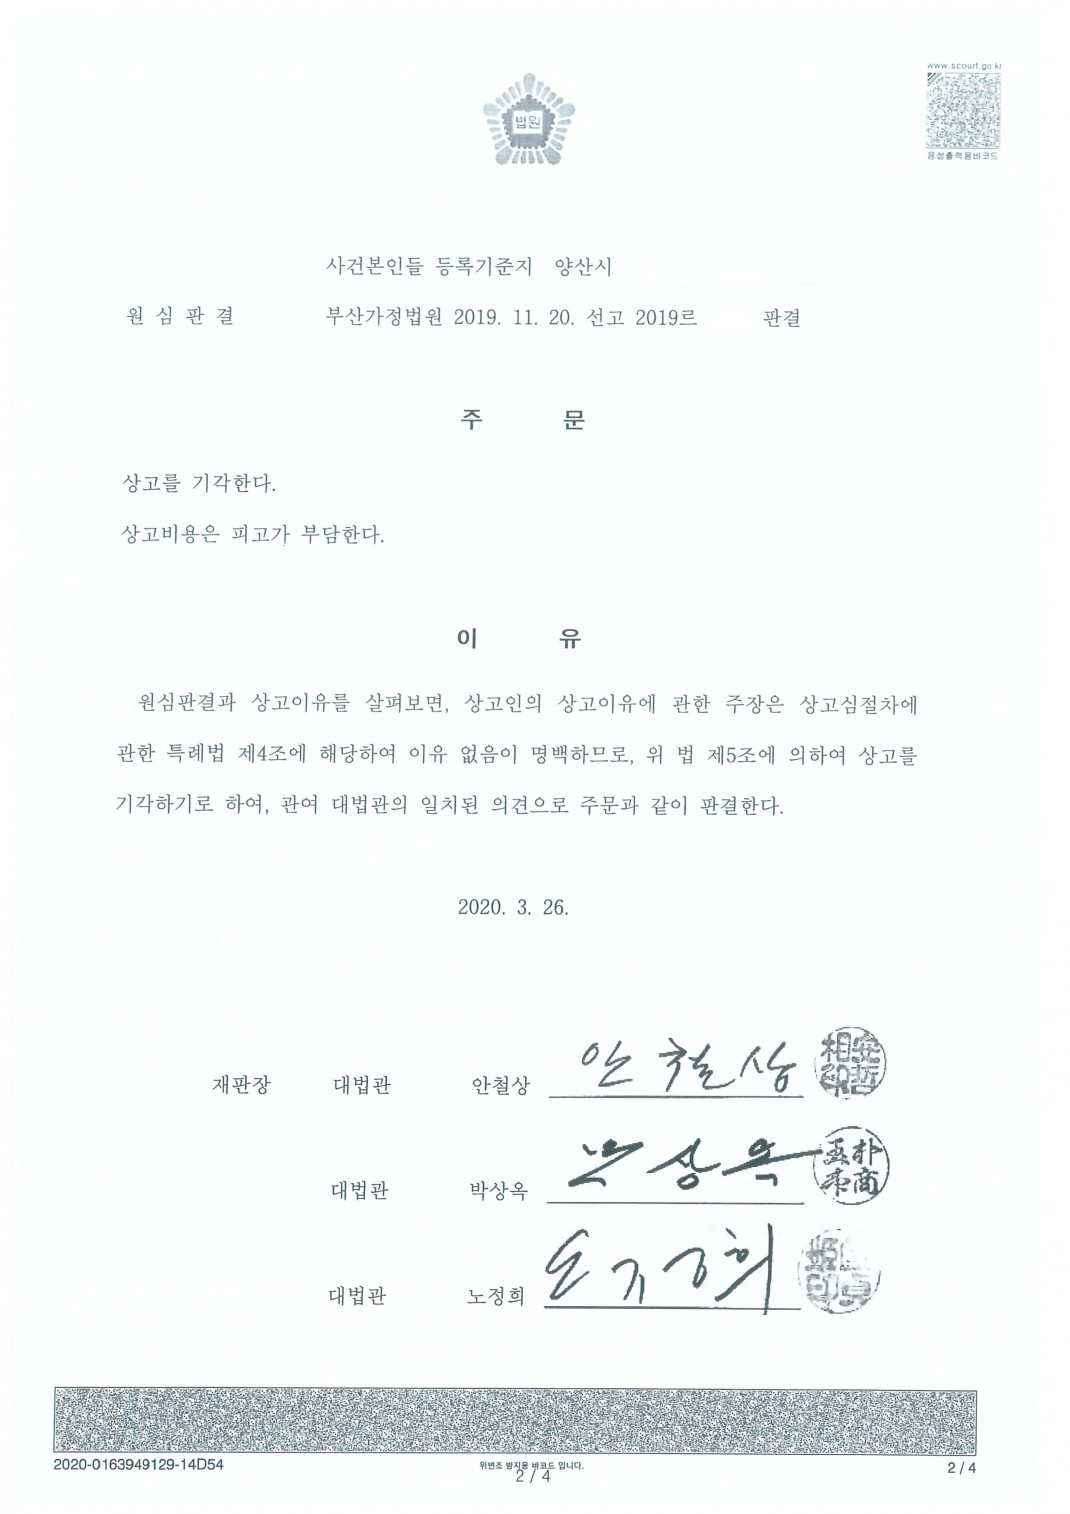 www.scourt.go.kr
법원
음성출력용바코드
사건본인들 등록기준지 양산시
원 심 판 결 부산가정법원 2019. 11. 20. 선고 2019르 판결
주 문
상고를 기각한다.
상고비용은 피고가 부담한다.
이 유
원심판결과 상고이유를 살펴보면, 상고인의 상고이유에 관한 주장은 상고심절차에
관한 특례법 제4조에 해당하여 이유 없음이 명백하므로, 위 법 제5조에 의하여 상고를
기각하기로 하여, 관여 대법관의 일치된 의견으로 주문과 같이 판결한다.
2020. 3. 26.
재판장 대법관 안철상 안철상
대법관 박상옥 박상옥
대법관 노정희 노정희
2020-0163949129-14D54 위변조 방지용 바코드 입니다. 2 / 4
2 / 4